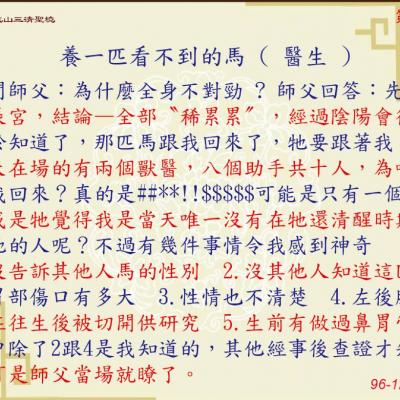 山三清聖境
養一匹看不到的馬 ( 醫生 )
師父：為什麼全身不對勁 ? 師父回答：先
宮，結論—全部〝稀累累〞，經過陰陽會
知道了，那匹馬跟我回來了，牠要跟著我
在場的有兩個獸醫，八個助手共十人，為
我回來？真的是##**!!$$$$$可能是只有一個
是牠覺得我是當天唯一沒有在牠還清醒時
他的人呢？不過有幾件事情令我感到神奇
告訴其他人馬的性別　2.沒其他人知道這
胃部傷口有多大　3.性情也不清楚　4.左後
往生後被切開供研究　5.生前有做過鼻胃
除了2跟4是我知道的，其他經事後查證才
是師父當場就瞭了。
96-1